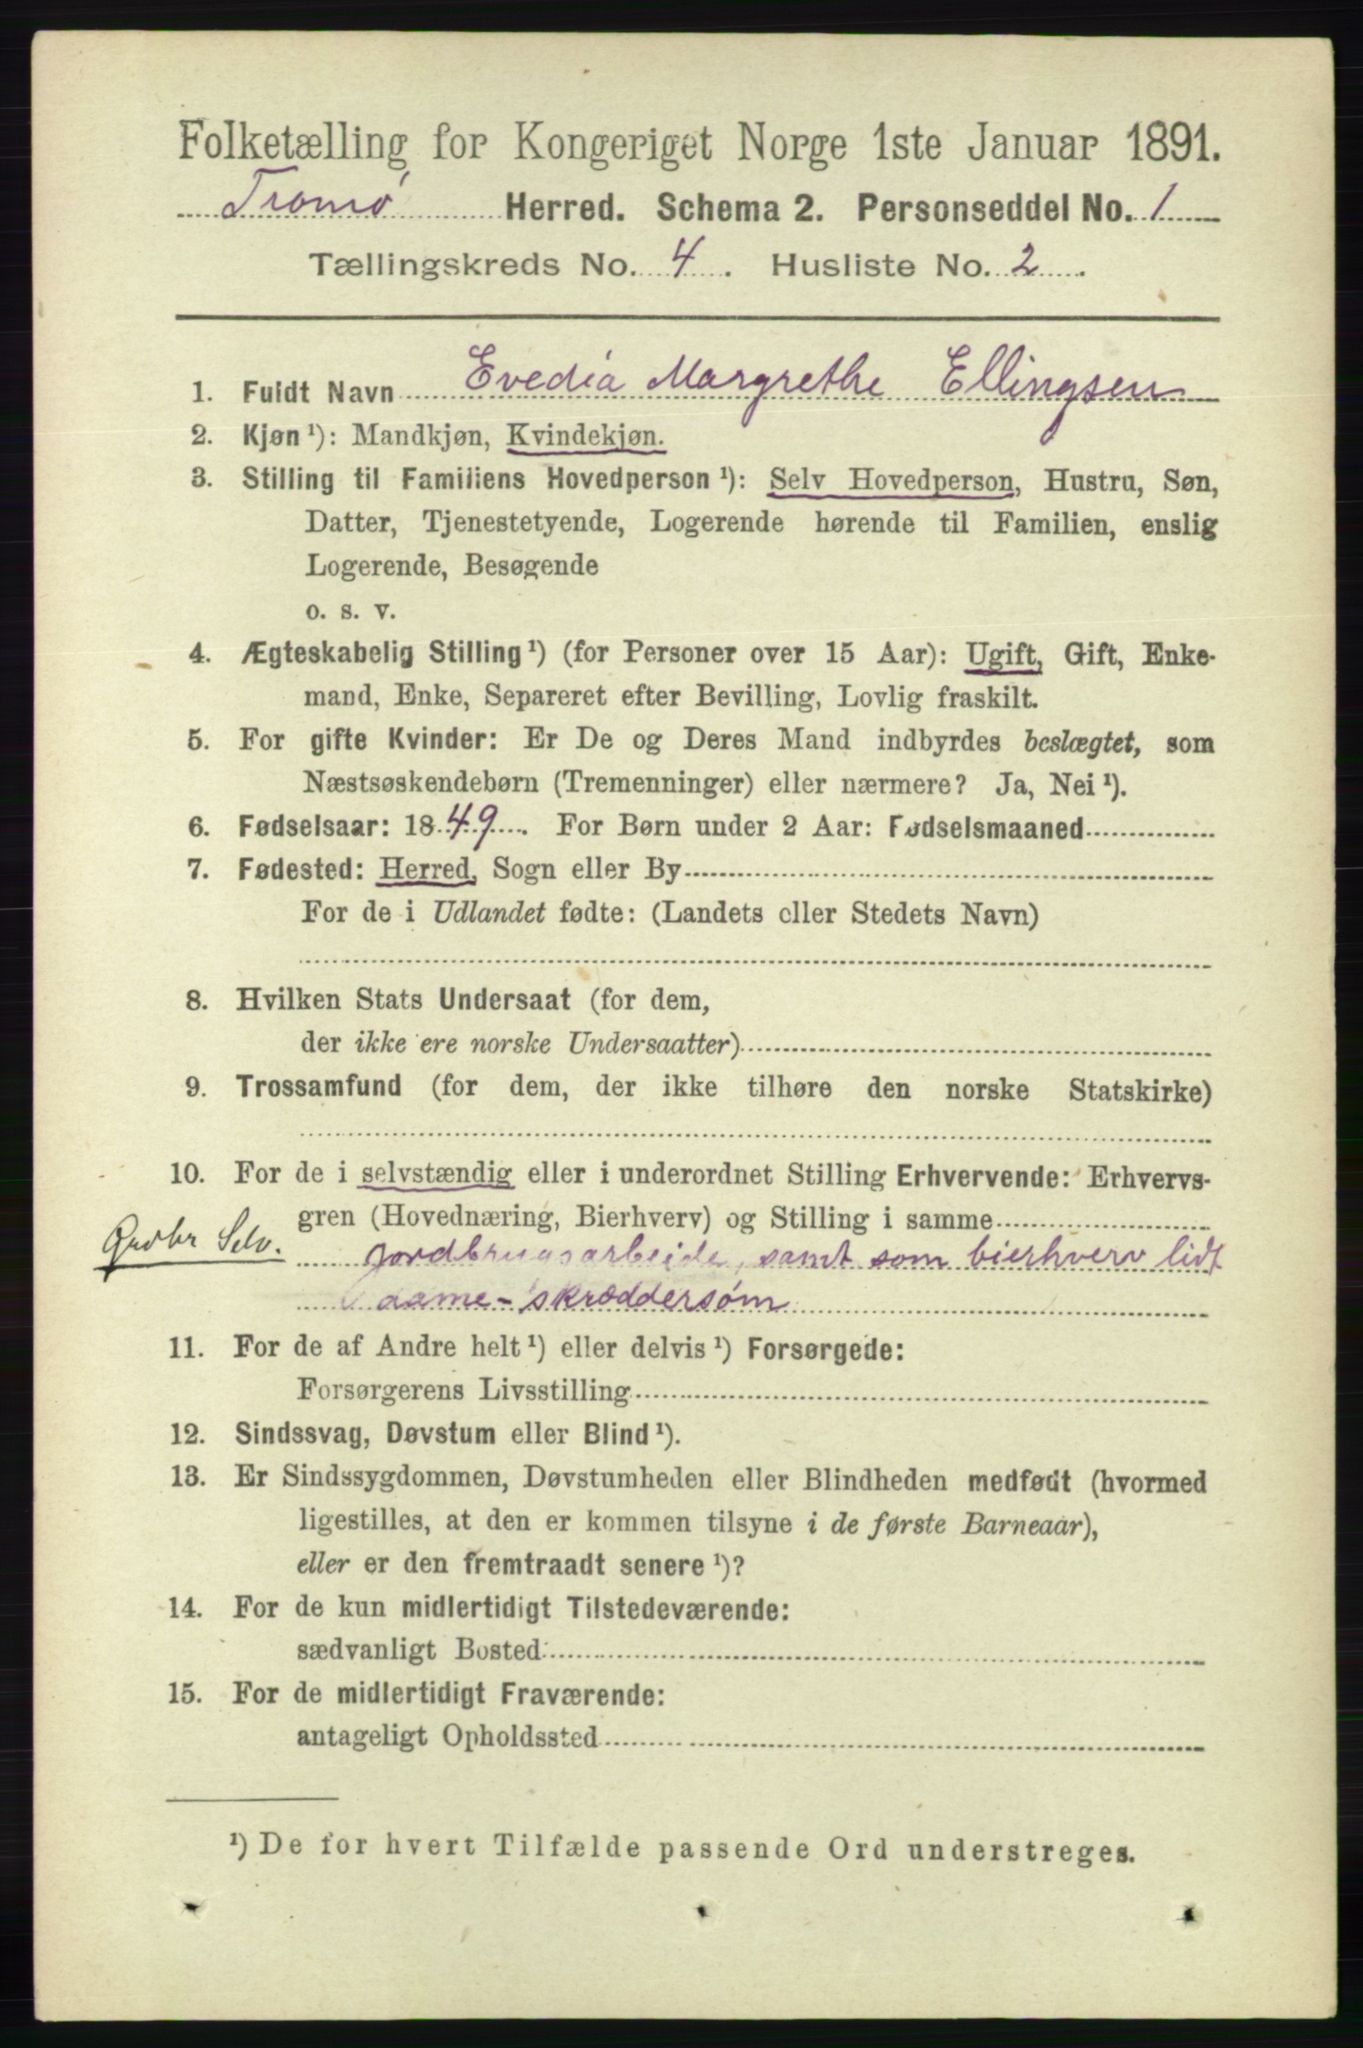 Folketælling for Kongeriget Norge 1ste Januar 1891.
Tromø Herred. Schema 2. Personseddel No. 1
Tællingskreds No. 4. Husliste No. 2.
1. Fuldt Navn Evedia Margrethe Ellingsen
2. Kjøn ¹): Mandkjøn, Kvindekjøn.
3. Stilling til Familiens Hovedperson ¹): Selv Hovedperson, Hustru, Søn,
Datter, Tjenestetyende, Logerende hørende til Familien, enslig
Logerende, Besøgende
o. s. v.
4. Ægteskabelig Stilling ¹) (for Personer over 15 Aar): Ugift, Gift, Enke-
mand, Enke, Separeret efter Bevilling, Lovlig fraskilt.
5. For gifte Kvinder: Er De og Deres Mand indbyrdes beslægtet, som
Næstsøskendebørn (Tremenninger) eller nærmere? Ja, Nei ¹).
6. Fødselsaar: 1849. For Børn under 2 Aar: Fødselsmaaned
7. Fødested: Herred, Sogn eller By
For de i Udlandet fødte: (Landets eller Stedets Navn)
8. Hvilken Stats Undersaat (for dem,
der ikke ere norske Undersaatter)
9. Trossamfund (for dem, der ikke tilhøre den norske Statskirke)
10. For de i selvstændig eller i underordnet Stilling Erhvervende: Erhvervs-
gren (Hovednæring, Bierhverv) og Stilling i samme
Gaardbr Selv. jordbrugsarbeide, samt som bierhverv lidt
dame-skræddersøm
11. For de af Andre helt ¹) eller delvis ¹) Forsørgede:
Forsørgerens Livsstilling
12. Sindssvag, Døvstum eller Blind ¹).
13. Er Sindssygdommen, Døvstumheden eller Blindheden medfødt (hvormed
ligestilles, at den er kommen tilsyne i de første Barneaar),
eller er den fremtraadt senere ¹)?
14. For de kun midlertidigt Tilstedeværende:
sædvanligt Bosted
15. For de midlertidigt Fraværende:
antageligt Opholdssted
¹) De for hvert Tilfælde passende Ord understreges.